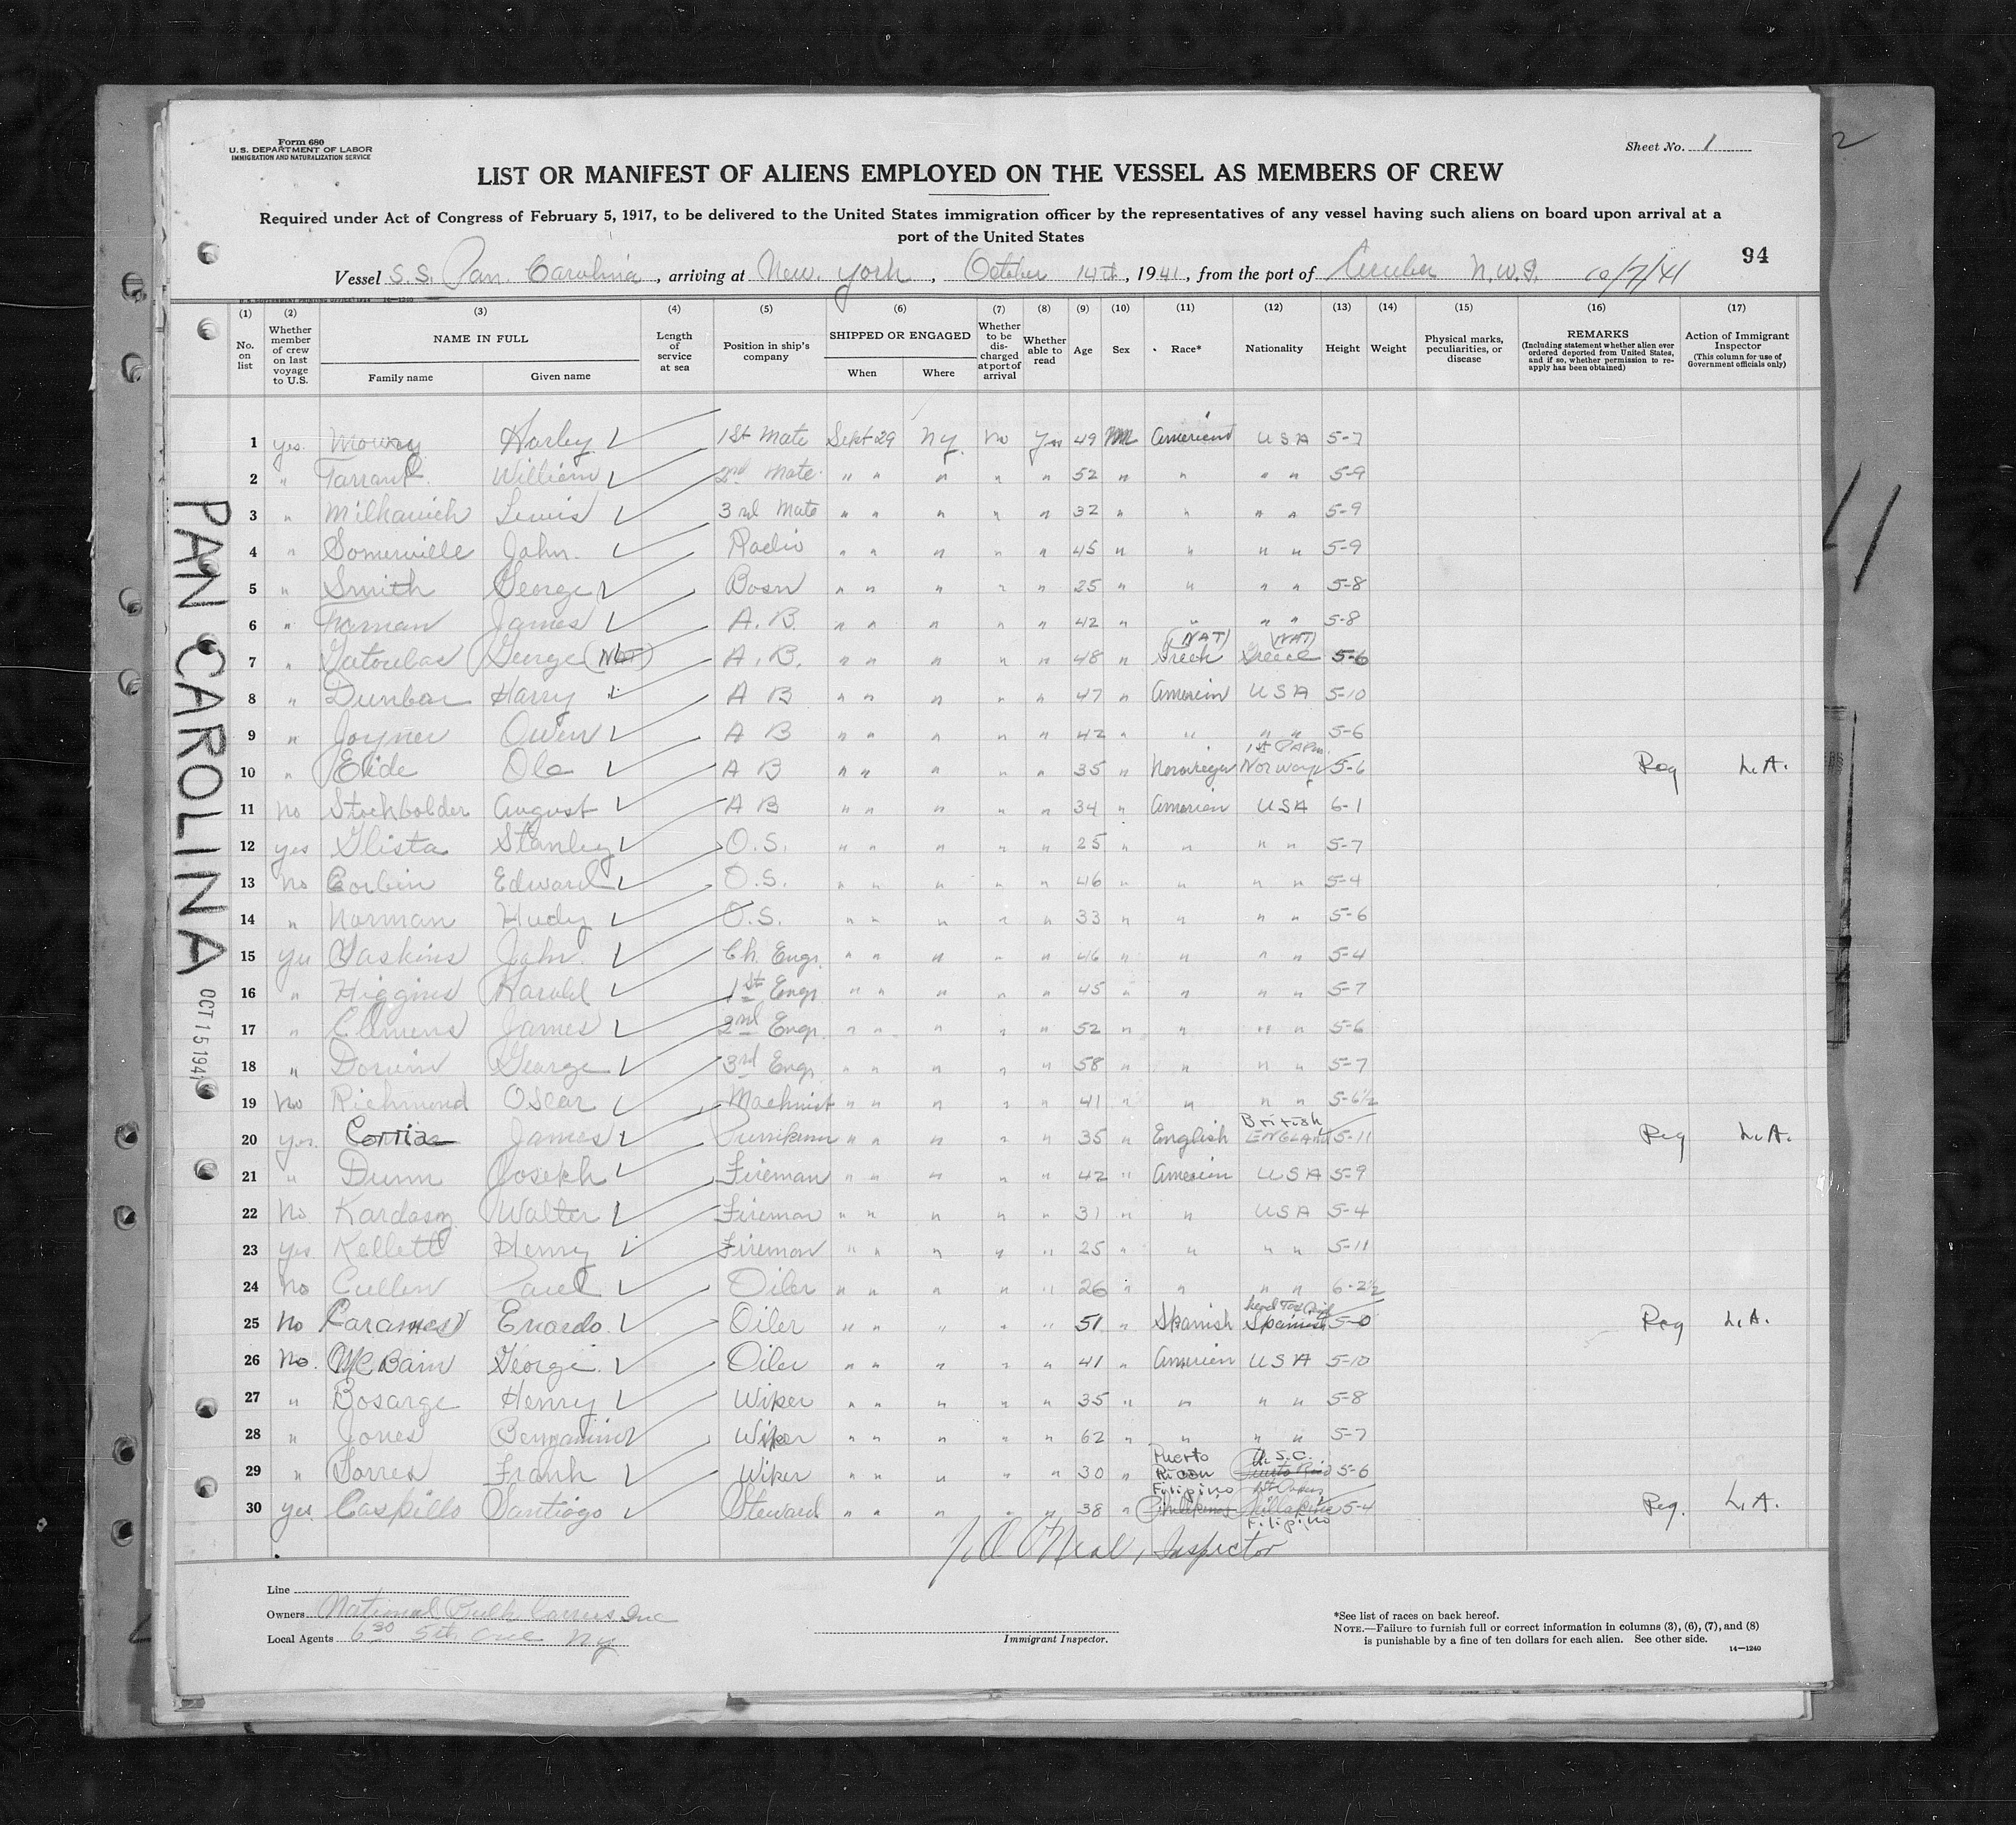 Form 680
U. S. DEPARTMENT OF LABOR
IMMIGRATION AND NATURALIZATION SERVICE
Sheet No. 1
2
LIST OR MANIFEST OF ALIENS EMPLOYED ON THE VESSEL AS MEMBERS OF CREW
Required under Act of Congress of February 5, 1917, to be delivered to the United States immigration officer by the representatives of any vessel having such aliens on board upon arrival at a
port of the United States
94
Vessel S.S. Pan. Carolina, arriving at New. York, October 14th, 1941, from the port of N.W.I. 10/7/41
(1) (2) (3) (4) (5) (6) (7) (8) (9) (10) (11) (12) (13) (14) (15) (16) (17)
No. on list
Whether member of crew on last voyage to U.S.
NAME IN FULL
Family name Given name
Length of service at sea
Position in ship's company
SHIPPED OR ENGAGED
When Where
Whether to be discharged at port of arrival
Whether able to read
Age
Sex
Race*
Nationality
Height
Weight
Physical marks, peculiarities, or disease
REMARKS
(Including statement whether alien ever ordered deported from United States, and if so, whether permission to reapply has been obtained)
Action of Immigrant Inspector
(This column for use of Government officials only)
1 yes. Mowry Harley 1st Mate Sept 29 Ny. No Yes 49 M American USA 5-7
2 " William 2nd Mate " " " " " 52 " " " " 5-9
3 " Milkanich Lewis 3rd Mate " " " " " 32 " " " " 5-9
4 " Somerville John. Radio " " " " " 45 " " " " 5-9
5 " Smith George Bosn " " " " " 25 " " " " 5-8
6 " James A. B. " " " " " 42 " " " " 5-8
7 " George A. B. " " " " " 48 " Greek (NAT) Greece (NAT) 5-6
8 " Dunbar Harry A B " " " " " 47 " American USA 5-10
9 " Joyner Owen A B " " " " " 42 " " " " 5-6
10 " Eide Ole A B " " " " " 35 " 1st Norway 5-6 Reg L.A.
11 No August A B " " " " " 34 " American USA 6-1
12 yes Glista Stanley O.S. " " " " " 25 " " " " 5-7
13 No Corbin Edward O.S. " " " " " 46 " " " " 5-4
14 " Norman Hudy O.S. " " " " " 33 " " " " 5-6
15 Yes Gaskins John Ch. Engr. " " " " " 46 " " " " 5-4
16 " Higgins Harold 1st Engr " " " " " 45 " " " " 5-7
17 " Clemens James 2nd Engr. " " " " " 52 " " " " 5-6
18 " George 3rd Engr " " " " " 58 " " " " 5-7
19 No Richmond Oscar Machinist " " " " " 41 " " " " 5-6½
20 yes. Corrie James " " " " " 35 " English British ENGLAND 5-11 Reg L.A.
21 " Dunn Joseph Fireman " " " " " 42 " American USA 5-9
22 No. Walter Fireman " " " " " 31 " " USA 5-4
23 yes. Kellett Henry Fireman " " " " " 25 " " " " 5-11
24 No Cullen Paul Oiler " " " " " 26 " " " " 6-2½
25 No Oiler " " " " " 51 " Spanish Head Tax Spanish 5-0 Reg L.A.
26 No. McBain George Oiler " " " " " 41 " American USA 5-10
27 " Bosarge Henry Wiper " " " " " 35 " " " " 5-8
28 " Jones Benjamin Wiper " " " " " 62 " " " " 5-7
29 " Torres Frank Wiper " " " " " 30 " Puerto Rican U.S.C. Puerto Rico 5-6
30 yes. Santiago Steward " " " " " 38 " Filipino Filipino 5-4 Reg. L.A.
O'Neal, Inspector
PAN CAROLINA
OCT 15 1941
Line
Owners National Bulk Carriers Inc
Local Agents 630 5th Ave Ny
Immigrant Inspector.
*See list of races on back hereof.
NOTE.—Failure to furnish full or correct information in columns (3), (6), (7), and (8)
is punishable by a fine of ten dollars for each alien. See other side.
14—1240